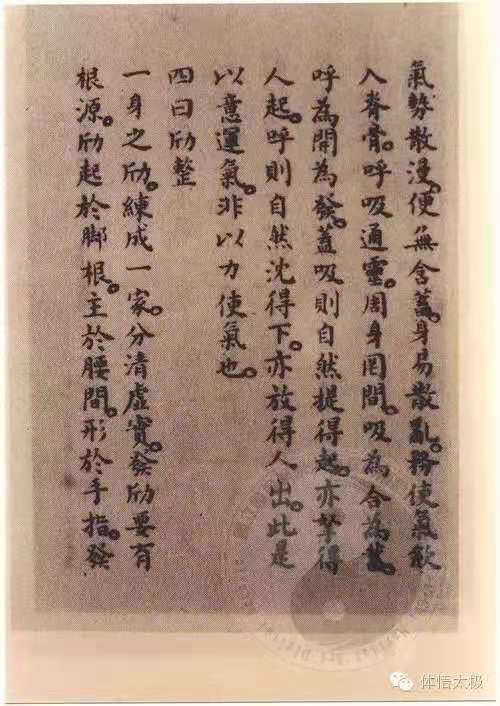 氣勢散漫。便無含蓋。身易散亂。務使氣歛
入脊骨。呼吸通靈。周身罔間。吸為合為蓄。
呼為開為發。蓋吸則自然提得起。亦拏得
人起。呼則自然沈得下。亦放得人出。此是
以意運氣。非以力使氣也。
四曰劤整
一身之劤。練成一家。分清虛實。發劤要有
根源。劤起於脚根。主於腰間。形於手指。發
体悟太极